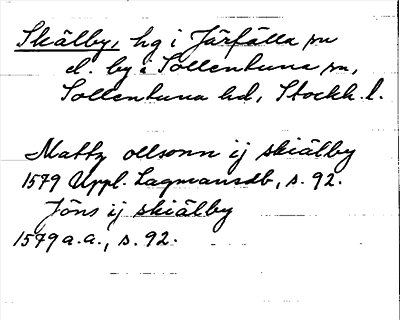 Skälby, hg i Järfälla sn
el. by i Sollentuna sn,
Sollentuna hd, Stockh. l.
Mattz ollsonn ij skiälby
1579 Uppl. Lagmansdb, s. 92.
Jöns ij skiälby
1579 a.a., s. 92.